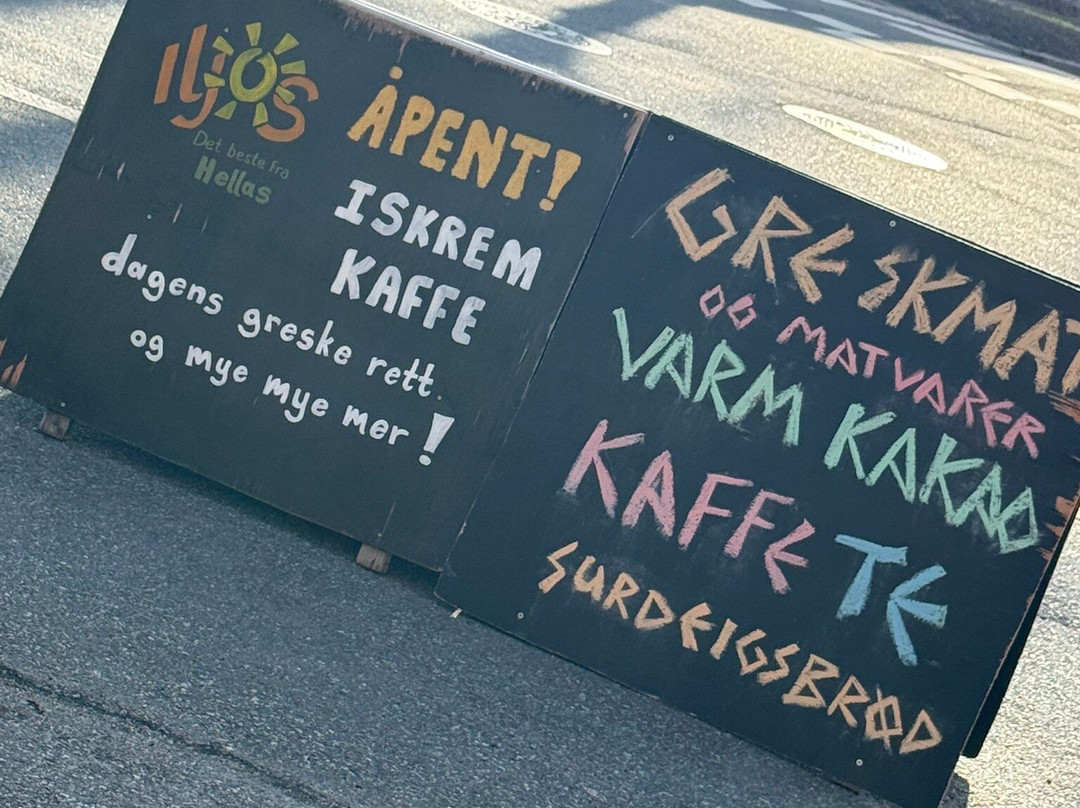 Iljos
Det beste fra
Hellas
ÅPENT!
ISKREM
KAFFE
dagens greske rett.
og mye mye mer!
GRESKMAT
OG MATVARER
VARM KAKAO
KAFFE TE
SURDEIGSBRØD